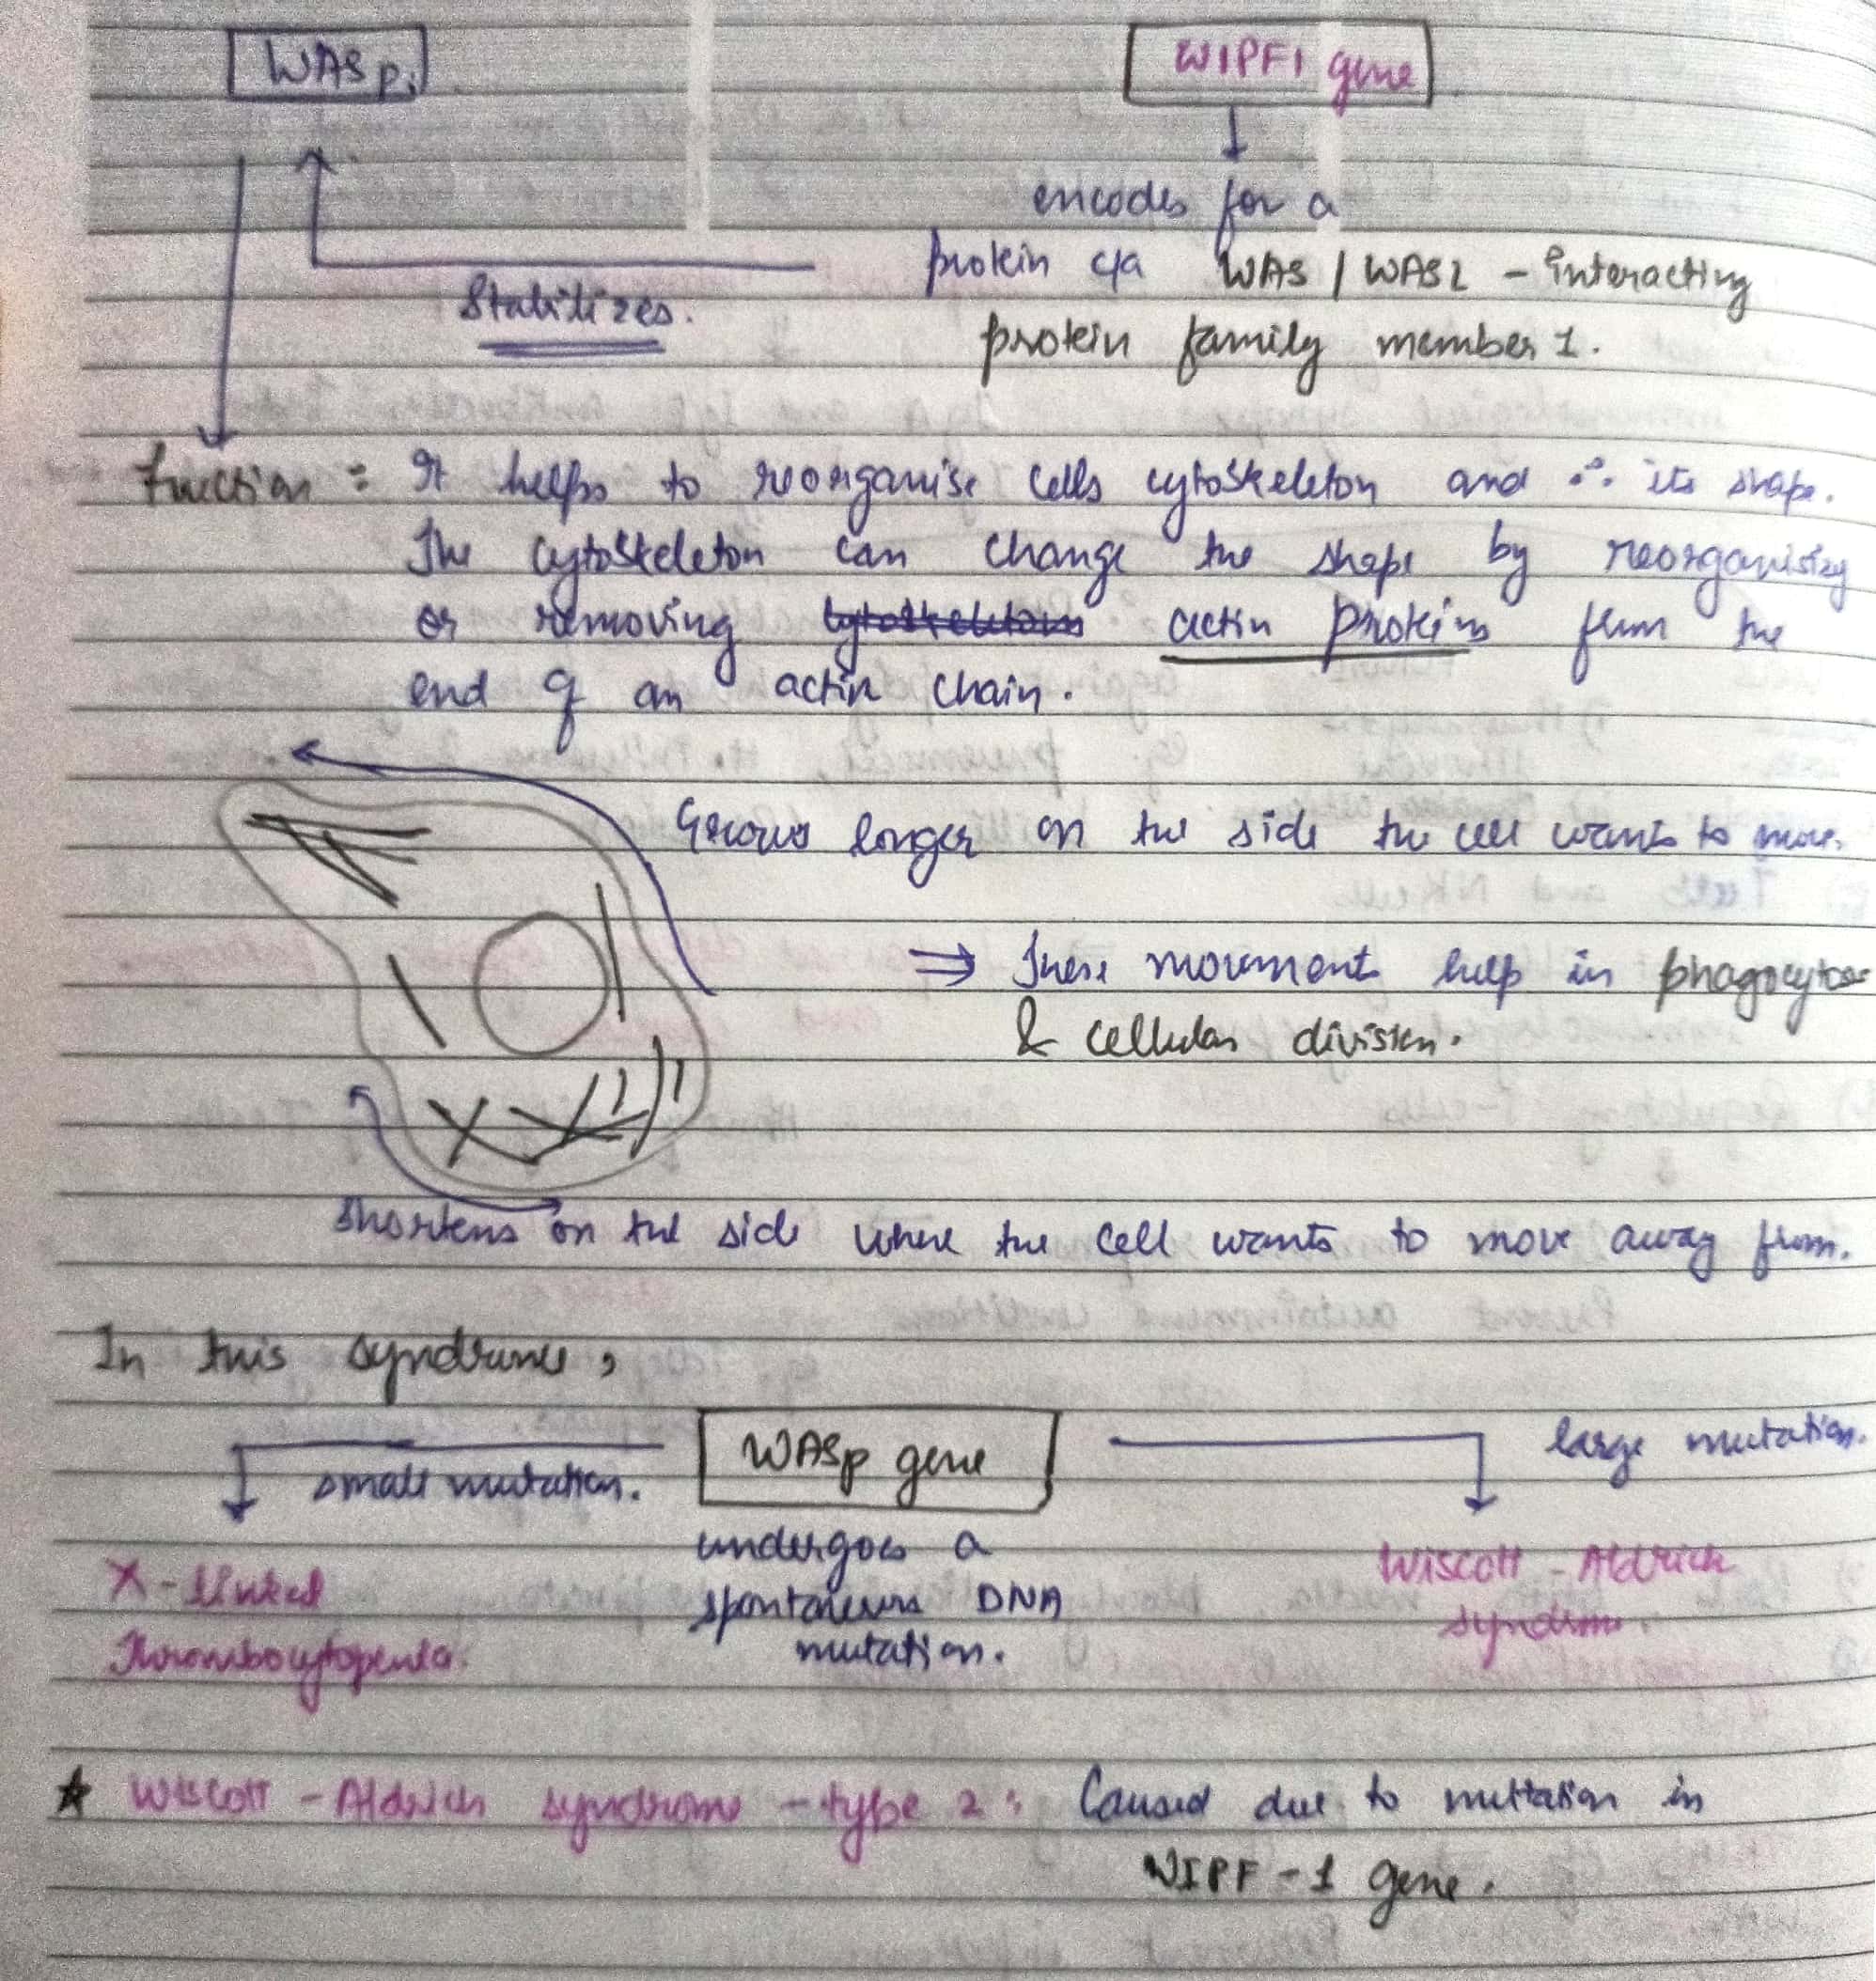 WASp.
WIPF1 gene
encodes for a
protein c/a WAS / WASL - interacting
protein family member 1.
Stabilizes.
Function : It helps to reorganise cells cytoskeleton and ∴ its shape.
The cytoskeleton can change the shape by reorganising
or removing cytoskeleton actin proteins from the
end of an actin chain.
Grows longer on the side the cell wants to move.
⇒ These movements help in phagocytosis
& cellular division.
Shortens on the side where the cell wants to move away from.
In this syndrome,
WASp gene
large mutation.
small mutation.
undergoes a
spontaneous DNA
mutation.
X - linked
Thrombocytopenia.
Wiscott - Aldrich
syndrome.
★ Wiscott - Aldrich syndrome - type 2 : Caused due to muttation in
WIPF - 1 gene.